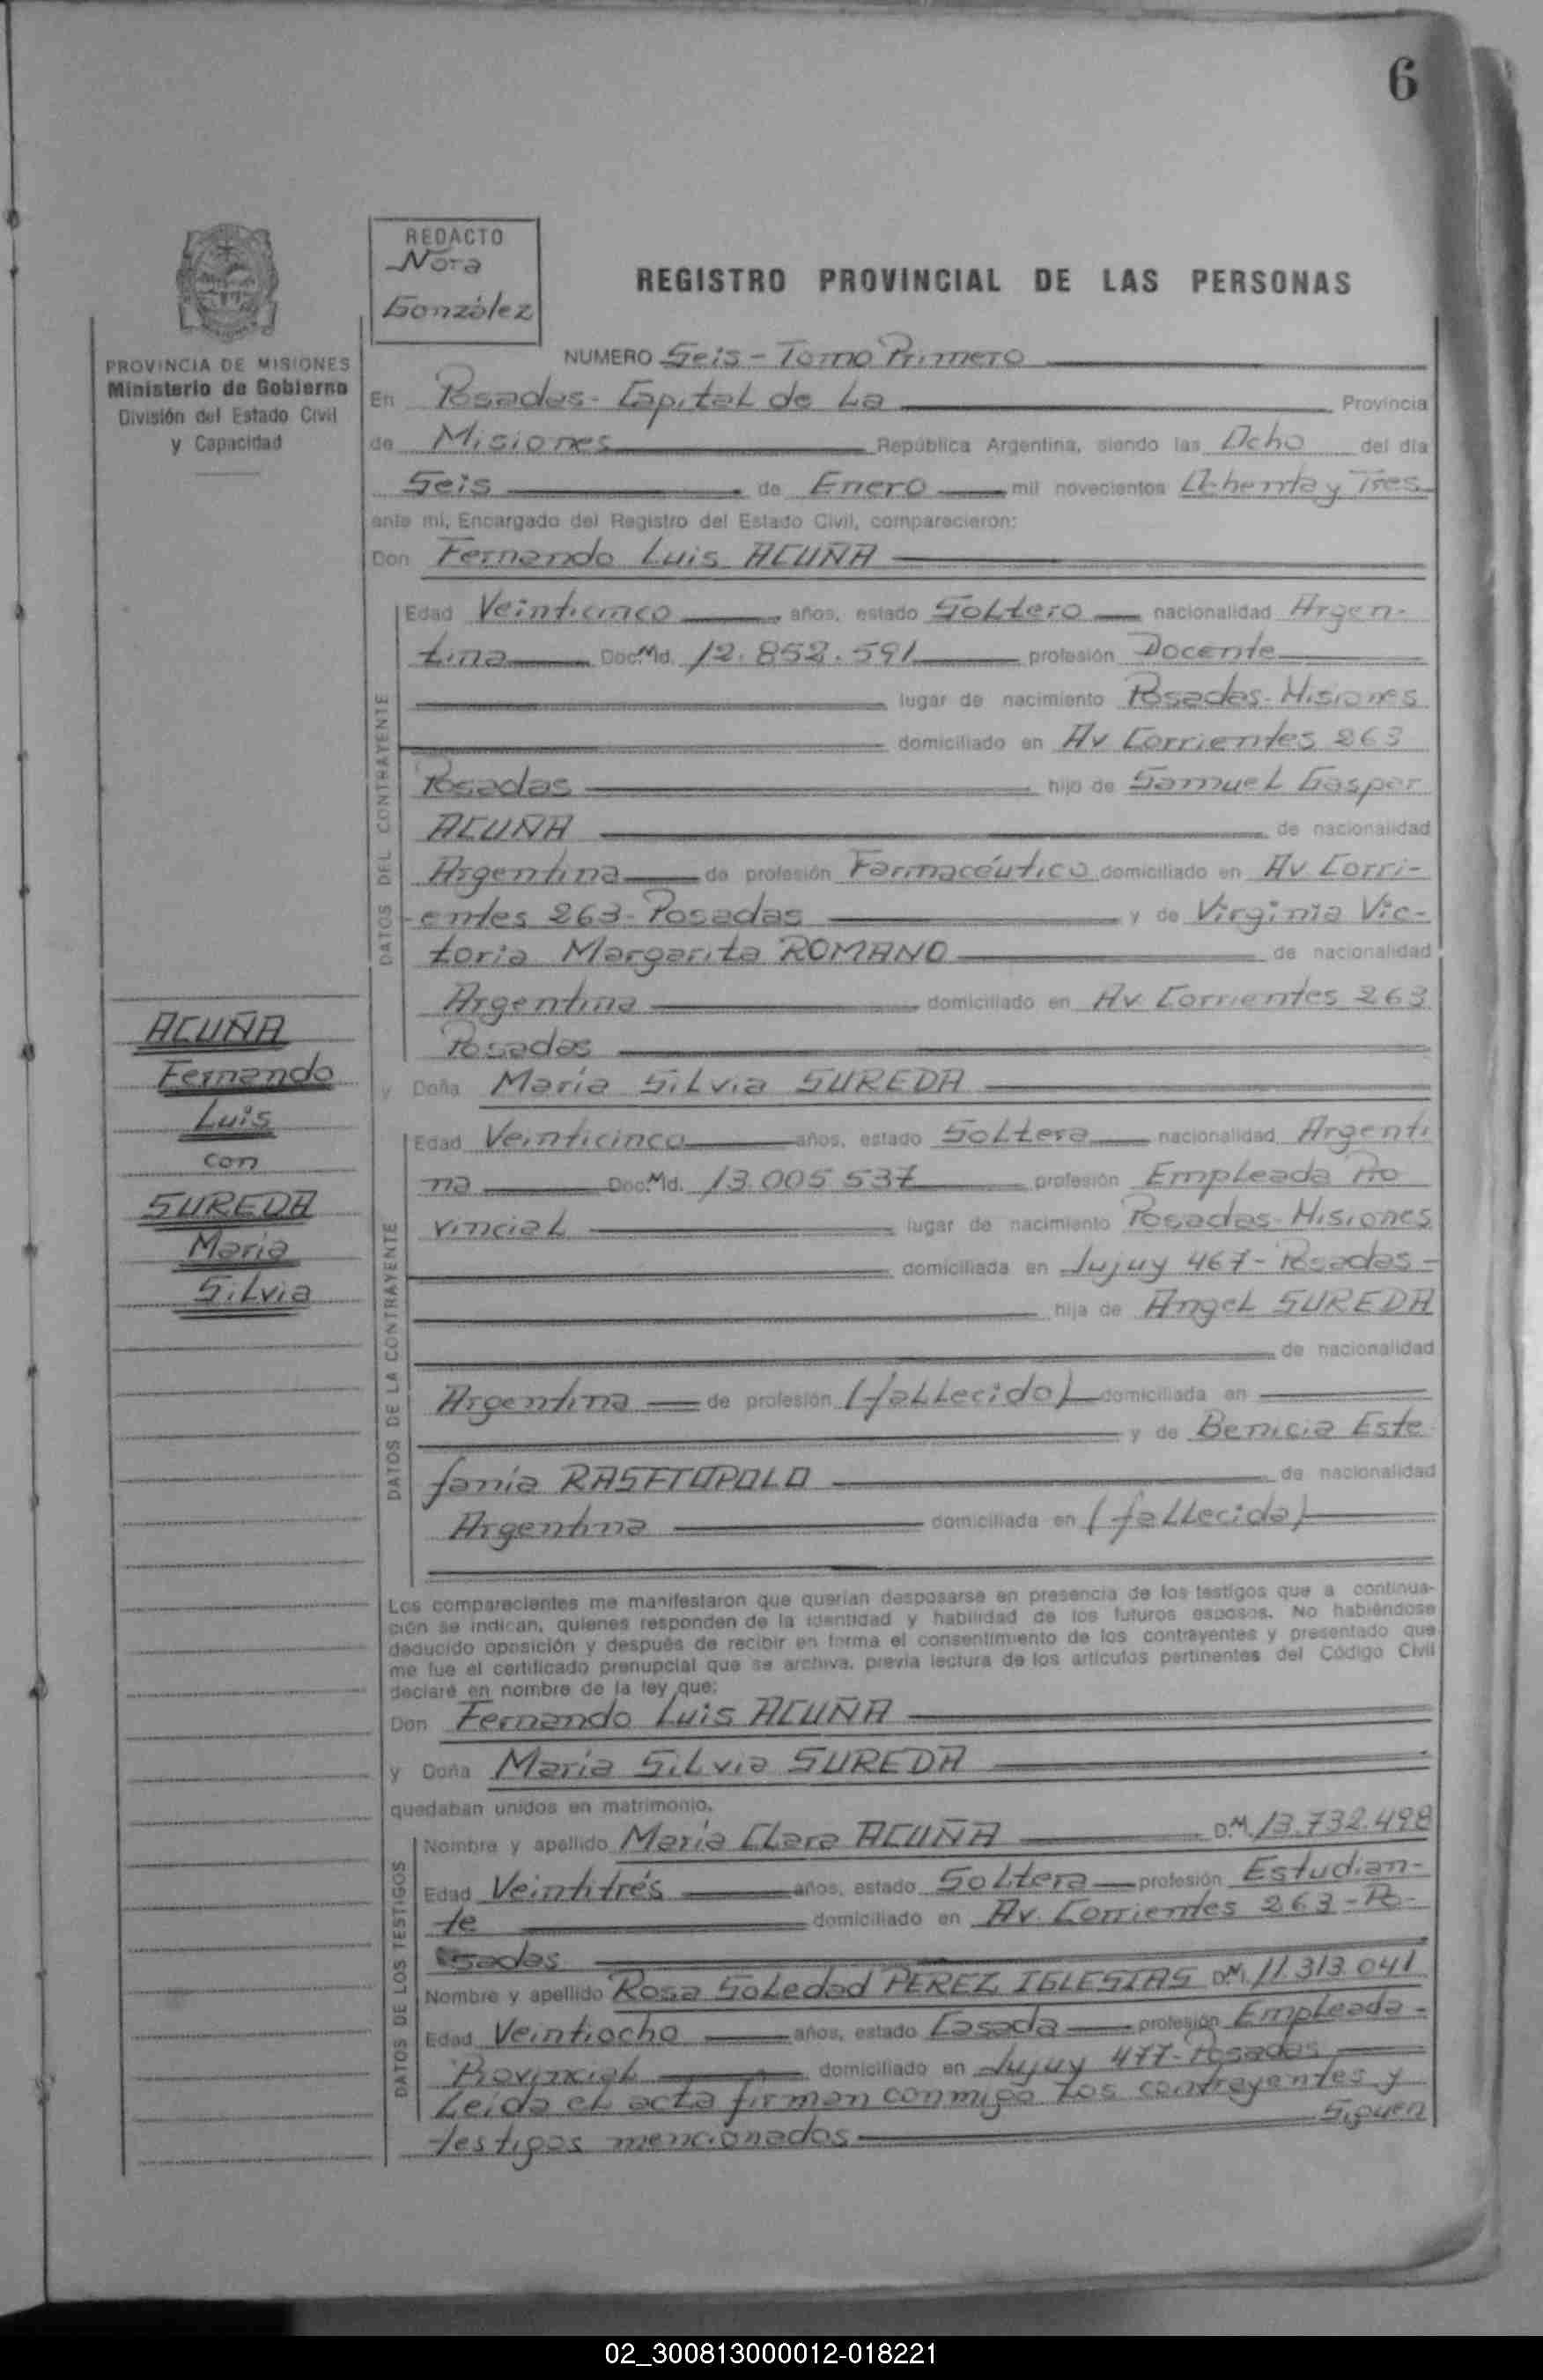 6
REDACTO
Nora
González
REGISTRO PROVINCIAL DE LAS PERSONAS
PROVINCIA DE MISIONES
Ministerio de Gobierno
División del Estado Civil
y Capacidad
NUMERO Seis - Tomo Primero
En Posadas - Capital de La Provincia
de Misiones República Argentina, siendo las Ocho del día
Seis de Enero mil novecientos Ochenta y Tres
ante mi, Encargado del Registro del Estado Civil, comparecieron:
Don Fernando Luis ACUÑA
DATOS DEL CONTRAYENTE
Edad Veinticinco años, estado Soltero nacionalidad Argen-
tina Doc. Md. 12.852.591 profesión Docente
lugar de nacimiento Posadas - Misiones
domiciliado en Av Corrientes 263
Posadas hijo de Samuel Gaspar
ACUÑA de nacionalidad
Argentina de profesión Farmacéutico domiciliado en Av. Corri-
entes 263 - Posadas y de Virginia Vic-
toria Margarita ROMANO de nacionalidad
Argentina domiciliado en Av Corrientes 263
Posadas
ACUÑA
Fernando
Luis
con
SUREDA
Maria
Silvia
y Doña María Silvia SUREDA
DATOS DE LA CONTRAYENTE
Edad Veinticinco años, estado Soltera nacionalidad Argenti
na Doc. Md. 13.005 537 profesión Empleada Pro
vincial lugar de nacimiento Posadas - Misiones
domiciliada en Jujuy 467 - Posadas -
hija de Angel SUREDA
de nacionalidad
Argentina de profesión (fallecido) domiciliada en
y de Benicia Este
fania RASFTOPOLO de nacionalidad
Argentina domiciliada en (fallecida)
Los comparecientes me manifestaron que querían desposarse en presencia de los testigos que a continua-
ción se indican, quienes responden de la identidad y habilidad de los futuros esposos. No habiéndose
deducido oposición y después de recibir en forma el consentimiento de los contrayentes y presentado que
me fue el certificado prenupcial que se archiva, previa lectura de los artículos pertinentes del Código Civil
declaré en nombre de la ley que:
Don Fernando Luis ACUÑA
y Doña María Silvia SUREDA
quedaban unidos en matrimonio.
DATOS DE LOS TESTIGOS
Nombre y apellido María Clara ACUÑA D.M. 13.732.498
Edad Veintitrés años, estado Soltera profesión Estudian-
te domiciliado en Av. Corrientes 263 - Po-
sadas
Nombre y apellido Rosa Soledad PEREZ IGLESIAS D.M. 11.313.041
Edad Veintiocho años, estado Casada profesión Empleada -
Provincial domiciliado en Jujuy 477 - Posadas
Leída el acta firman conmigo los contrayentes y
testigos mencionados Siguen
02_300813000012-018221